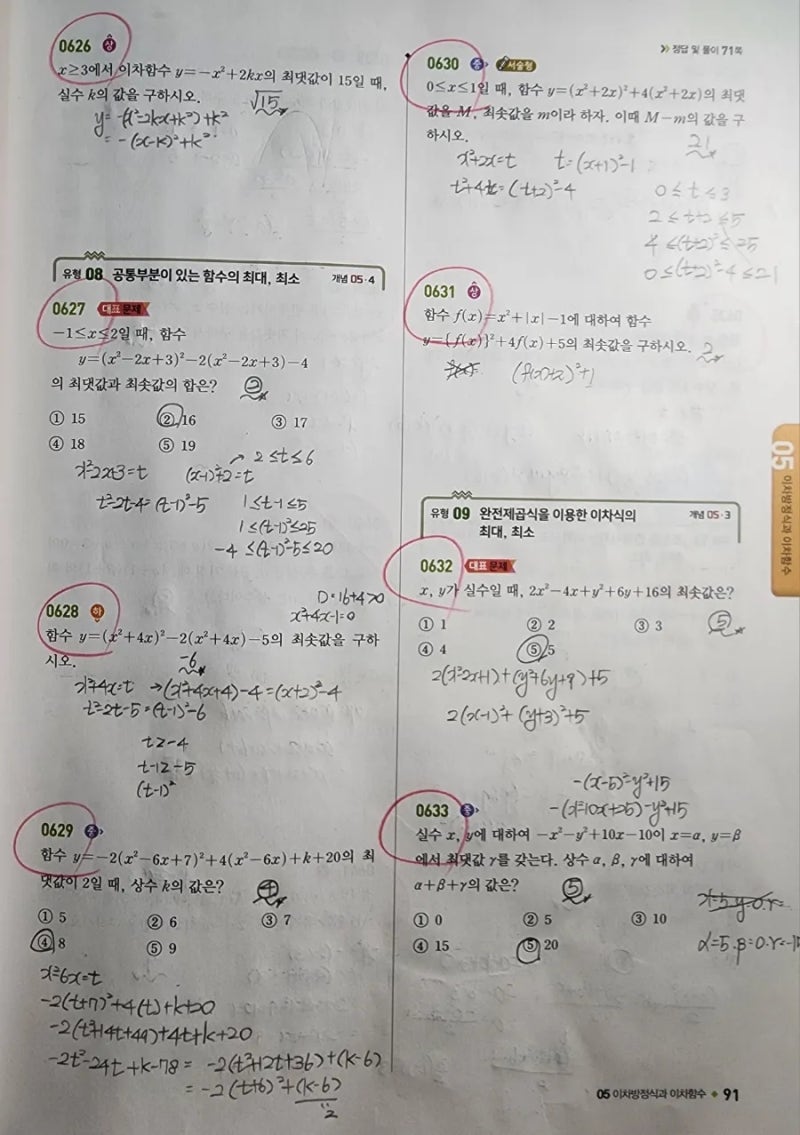 0626 상
x≥3에서 이차함수 y=-x²+2kx의 최댓값이 15일 때,
실수 k의 값을 구하시오.
√15
y= -(x²-2kx+k²)+k²
= -(x-k)²+k²
유형 08 공통부분이 있는 함수의 최대, 최소 개념 05·4
0627 대표 문제
-1≤x≤2일 때, 함수
y=(x²-2x+3)²-2(x²-2x+3)-4
의 최댓값과 최솟값의 합은?
②
① 15 ② 16 ③ 17
④ 18 ⑤ 19
→ 2≤t≤6
x²-2x+3=t (x-1)²+2=t
t²-2t-4=(t-1)²-5 1≤t-1≤5
1≤(t-1)²≤25
-4≤(t-1)²-5≤20
0628 하
D=16+4>0
x²+4x-1=0
함수 y=(x²+4x)²-2(x²+4x)-5의 최솟값을 구하
시오.
-6
x²+4x=t →(x²+4x+4)-4=(x+2)²-4
t²-2t-5=(t-1)²-6
t≥-4
t-1≥-5
(t-1)²
0629 중
함수 y=-2(x²-6x+7)²+4(x²-6x)+k+20의 최
댓값이 2일 때, 상수 k의 값은?
④
① 5 ② 6 ③ 7
④ 8 ⑤ 9
x²-6x=t
-2(t+7)²+4(t)+k+20
-2(t²+14t+49)+4t+k+20
-2t²-24t+k-78= -2(t²+12t+36)+(k-6)
= -2(t+6)²+(k-6)
2
정답 및 풀이 71쪽
0630 중 서술형
0≤x≤1일 때, 함수 y=(x²+2x)²+4(x²+2x)의 최댓
값을 M, 최솟값을 m이라 하자. 이때 M-m의 값을 구
하시오.
21
x²+2x=t t=(x+1)²-1
t²+4t=(t+2)²-4
0≤t≤3
2≤t+2≤5
4≤(t+2)²≤25
0≤(t+2)²-4≤21
0631 상
함수 f(x)=x²+|x|-1에 대하여 함수
y={f(x)}²+4f(x)+5의 최솟값을 구하시오.
2
(f(x)+2)²+1
유형 09 완전제곱식을 이용한 이차식의 개념 05·3
최대, 최소
0632 대표 문제
x, y가 실수일 때, 2x²-4x+y²+6y+16의 최솟값은?
⑤
① 1 ② 2 ③ 3
④ 4 ⑤ 5
2(x²-2x+1)+(y²+6y+9)+5
2(x-1)²+(y+3)²+5
-(x-5)²-y²+15
-(x²-10x+25)-y²+15
0633 중
실수 x, y에 대하여 -x²-y²+10x-10이 x=α, y=β
에서 최댓값 γ를 갖는다. 상수 α, β, γ에 대하여
α+β+γ의 값은?
⑤
① 0 ② 5 ③ 10
④ 15 ⑤ 20
α=5.β=0.γ=-1
05
이차방정식과 이차함수
05 이차방정식과 이차함수 91